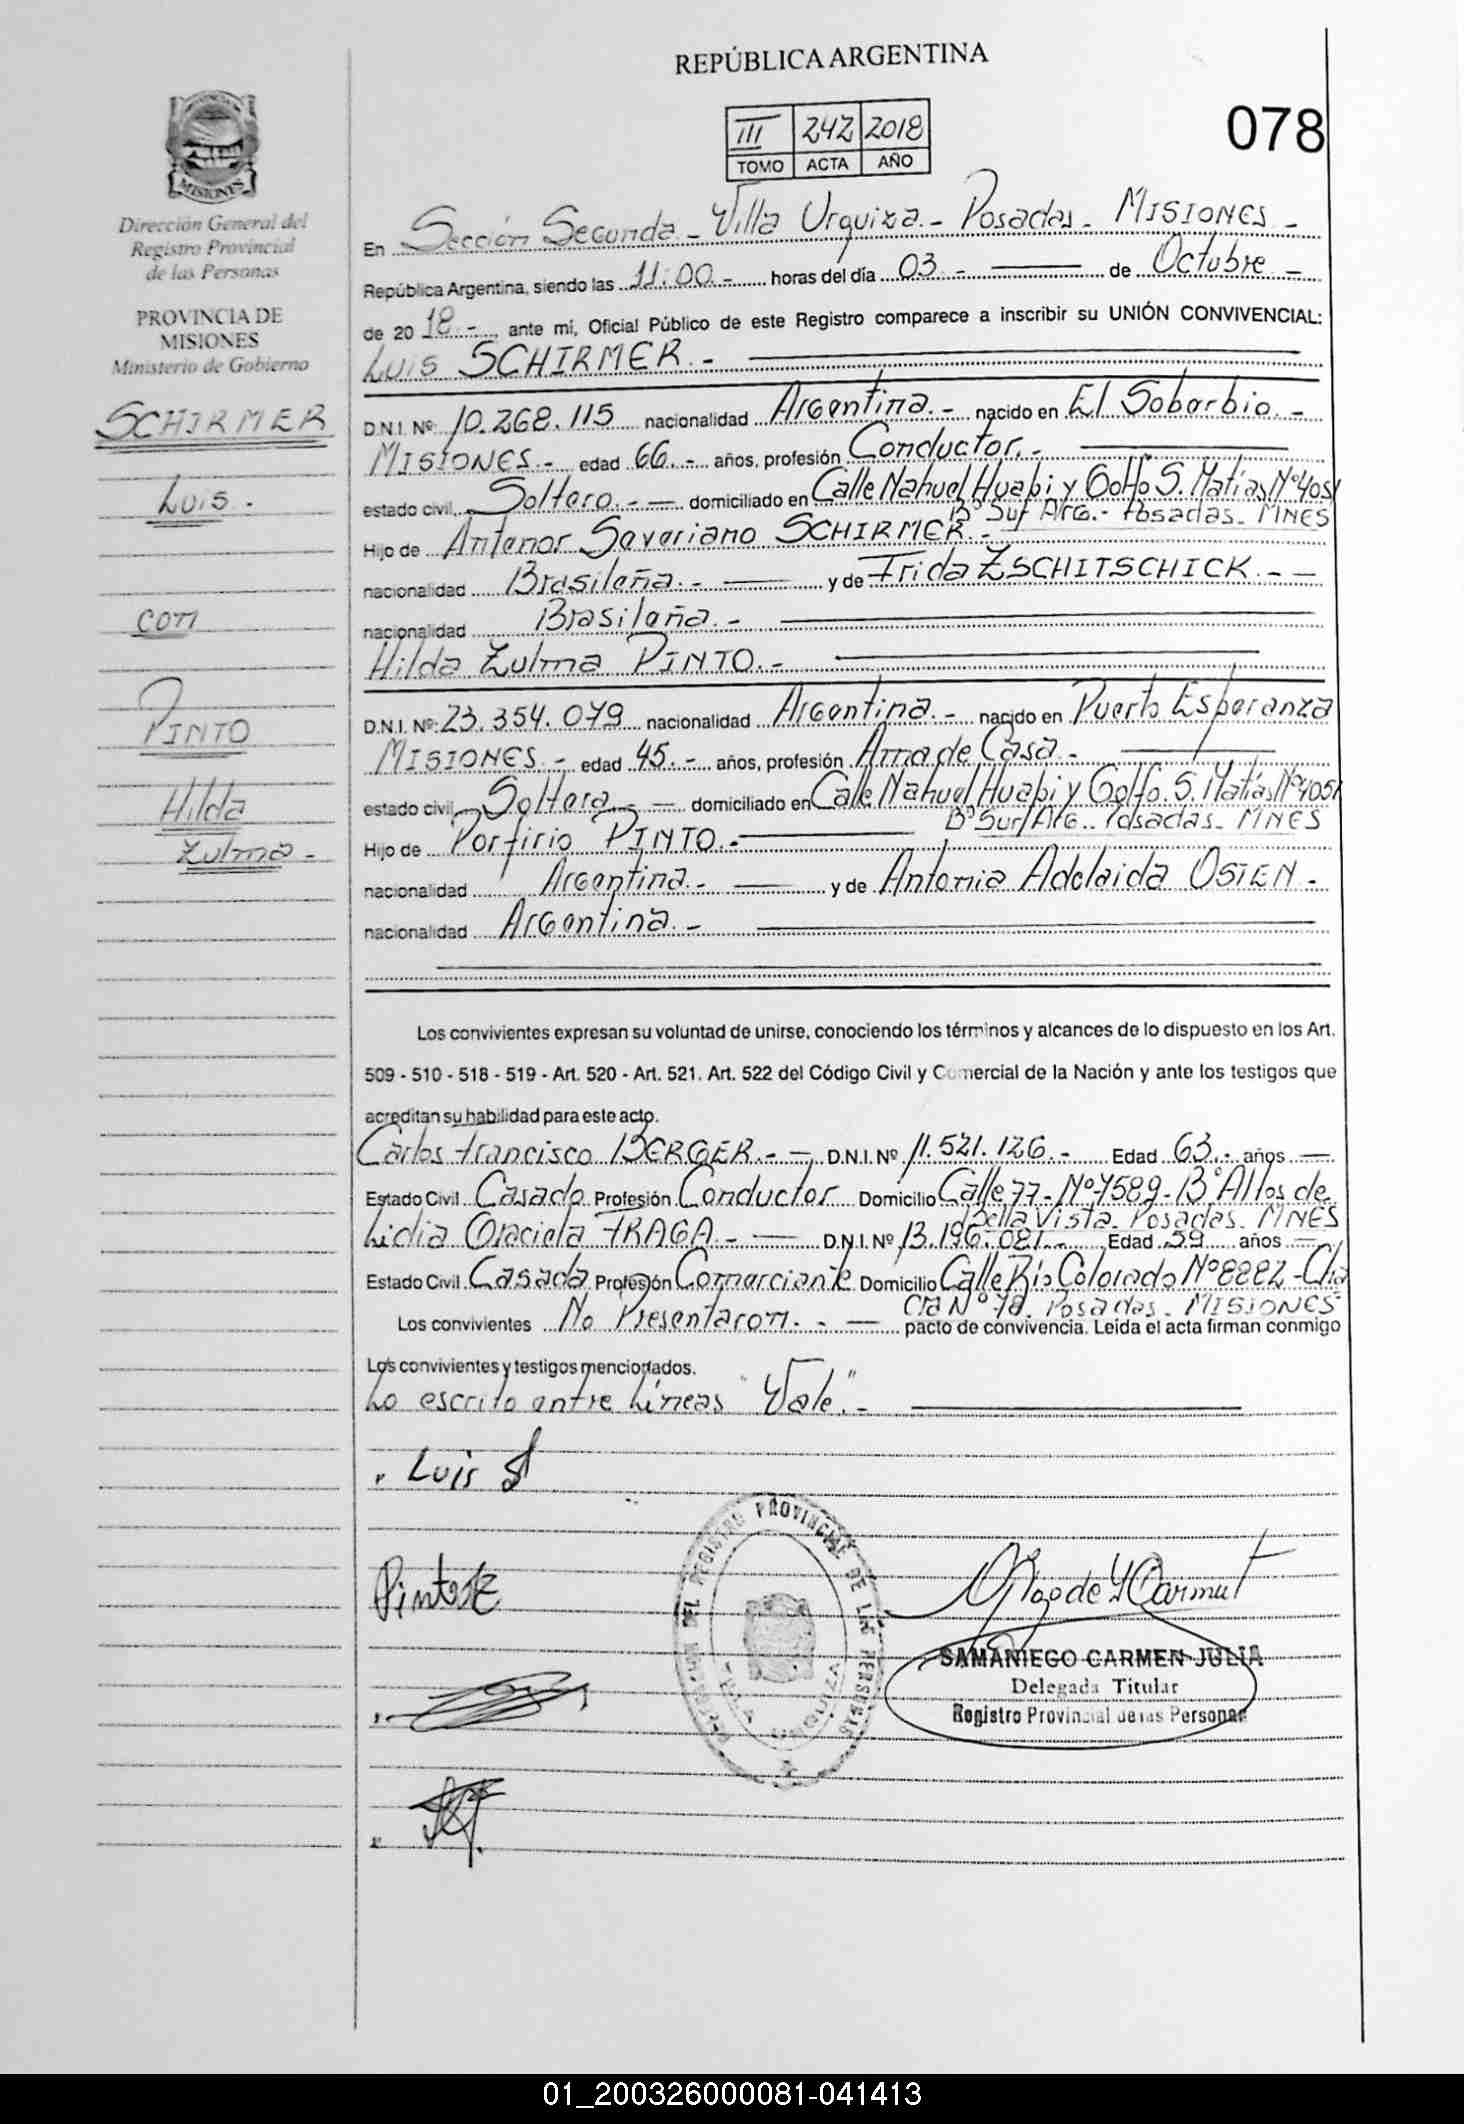 REPÚBLICA ARGENTINA
III 242 2018
TOMO ACTA AÑO
078
MISIONES
Dirección General del
Registro Provincial
de las Personas
PROVINCIA DE
MISIONES
Ministerio de Gobierno
SCHIRMER
Luis.-
con
PINTO
Hilda
Zulma-
En Sección Segunda - Villa Urquiza.- Posadas- MISIONES-
República Argentina, siendo las 11:00.- horas del día 03.- de Octubre-
de 2018.- ante mí, Oficial Público de este Registro comparece a inscribir su UNIÓN CONVIVENCIAL:
Luis SCHIRMER.-
D.N.I. Nº: 10.268.115 nacionalidad Argentina.- nacido en El Soberbio.-
MISIONES.- edad 66.- años, profesión Conductor.-
estado civil Soltero.- domiciliado en Calle Nahuel Huapi y Golfo S. Matías Nº4051
Bº Sur Arg.- Posadas- MNES
Hijo de Antenor Severiano SCHIRMER.-
nacionalidad Brasileña.- y de Frida ZSCHITSCHICK.-
nacionalidad Brasileña.-
Hilda Zulma PINTO.-
D.N.I. Nº: 23.354.079 nacionalidad Argentina.- nacido en Puerto Esperanza
MISIONES.- edad 45.- años, profesión Ama de Casa.-
estado civil Soltera.- domiciliado en Calle Nahuel Huapi y Golfo S. Matías Nº4051
Bº Sur Arg.. Posadas- MNES
Hijo de Porfirio PINTO.-
nacionalidad Argentina.- y de Antonia Adelaida OSTEN.-
nacionalidad Argentina.-
Los convivientes expresan su voluntad de unirse, conociendo los términos y alcances de lo dispuesto en los Art.
509 - 510 - 518 - 519 - Art. 520 - Art. 521. Art. 522 del Código Civil y Comercial de la Nación y ante los testigos que
acreditan su habilidad para este acto.
Carlos Francisco BERGER.- D.N.I. Nº 11.521.126.- Edad 63.- años
Estado Civil Casado Profesión Conductor Domicilio Calle 77- Nº7589-Bº Altos de
Bella Vista. Posadas. MNES
Lidia Graciela FRAGA.- D.N.I. Nº 13.196.081.- Edad 59 años
Estado Civil Casada Profesión Comerciante Domicilio Calle Río Colorado Nº8882-Cha
cra Nº 78. Posadas. MISIONES
Los convivientes No Presentaron.- pacto de convivencia. Leída el acta firman conmigo
Los convivientes y testigos mencionados.
Lo escrito entre Líneas "Vale".-
Luis S
Pinto
DEL REGISTRO PROVINCIAL DE LAS PERSONAS
SAMANIEGO CARMEN JULIA
Delegada Titular
Registro Provincial de las Personas
01_200326000081-041413